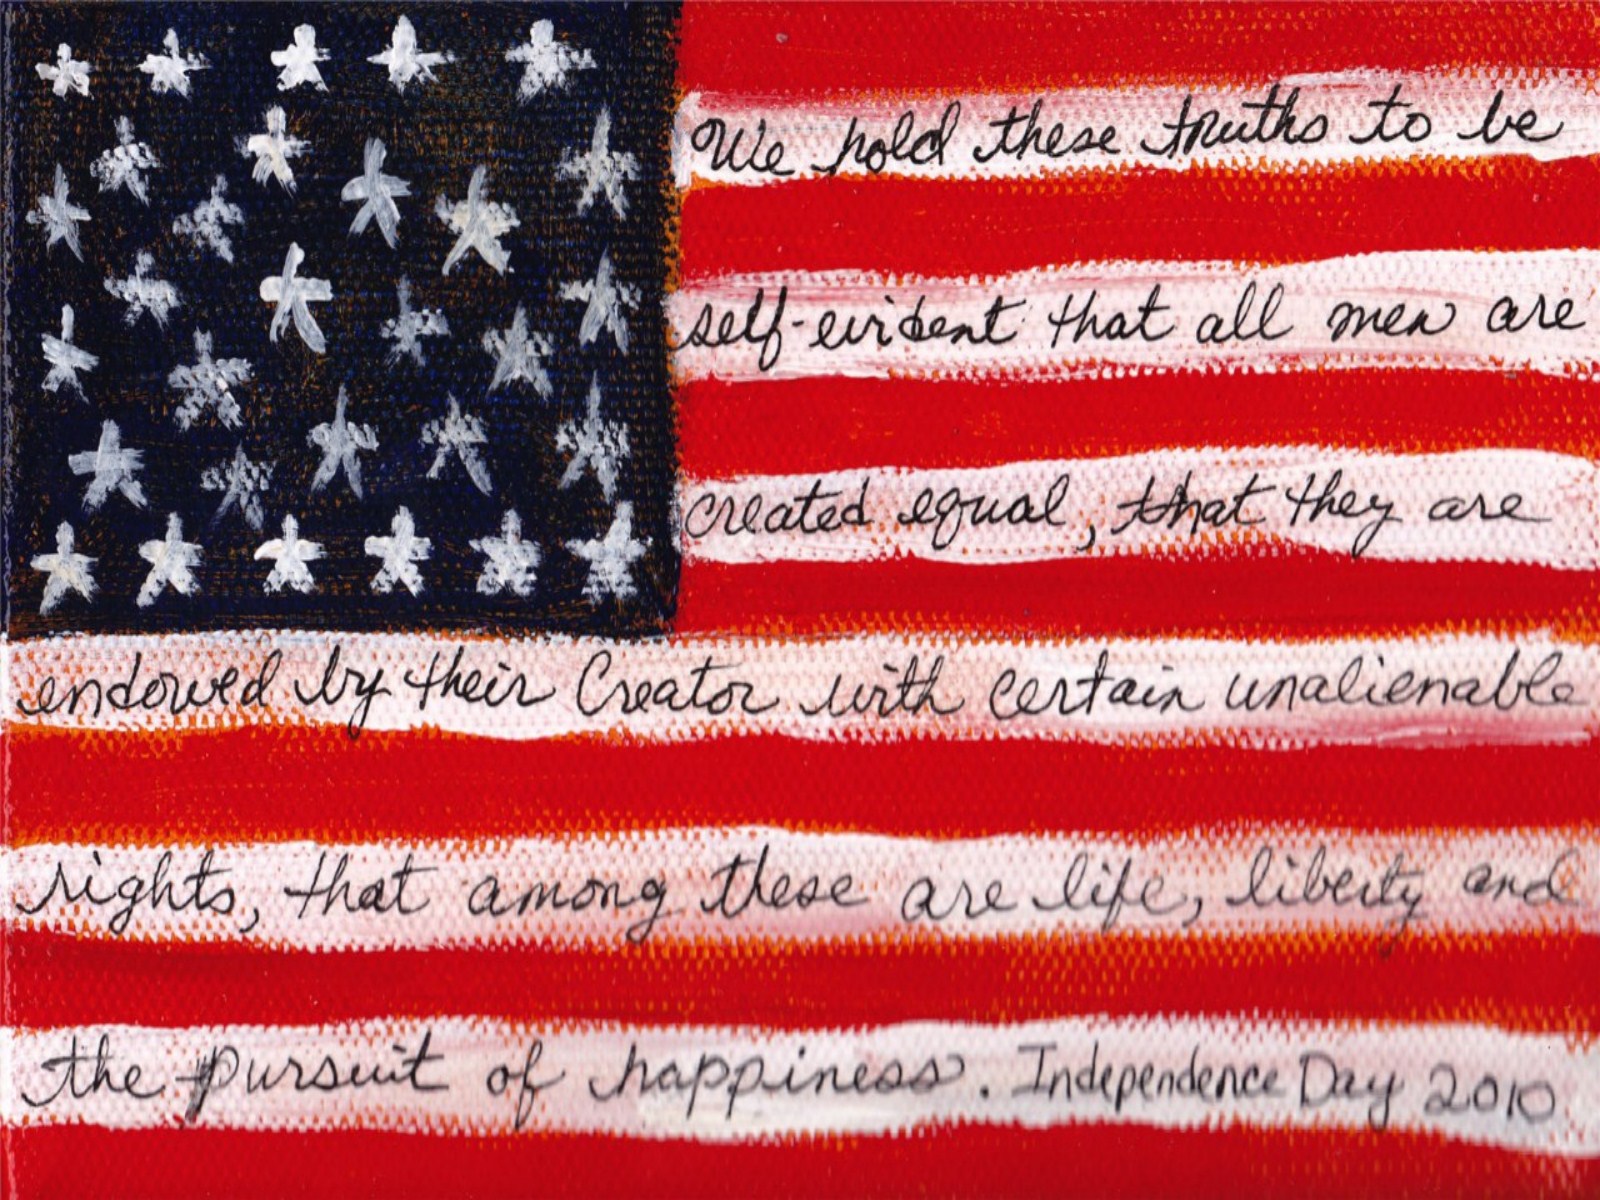 We hold these truths to be
self-evident that all men are
created equal, that they are
endowed by their Creator with certain unalienable
rights, that among these are life, liberty and
the pursuit of happiness. Independence Day 2010